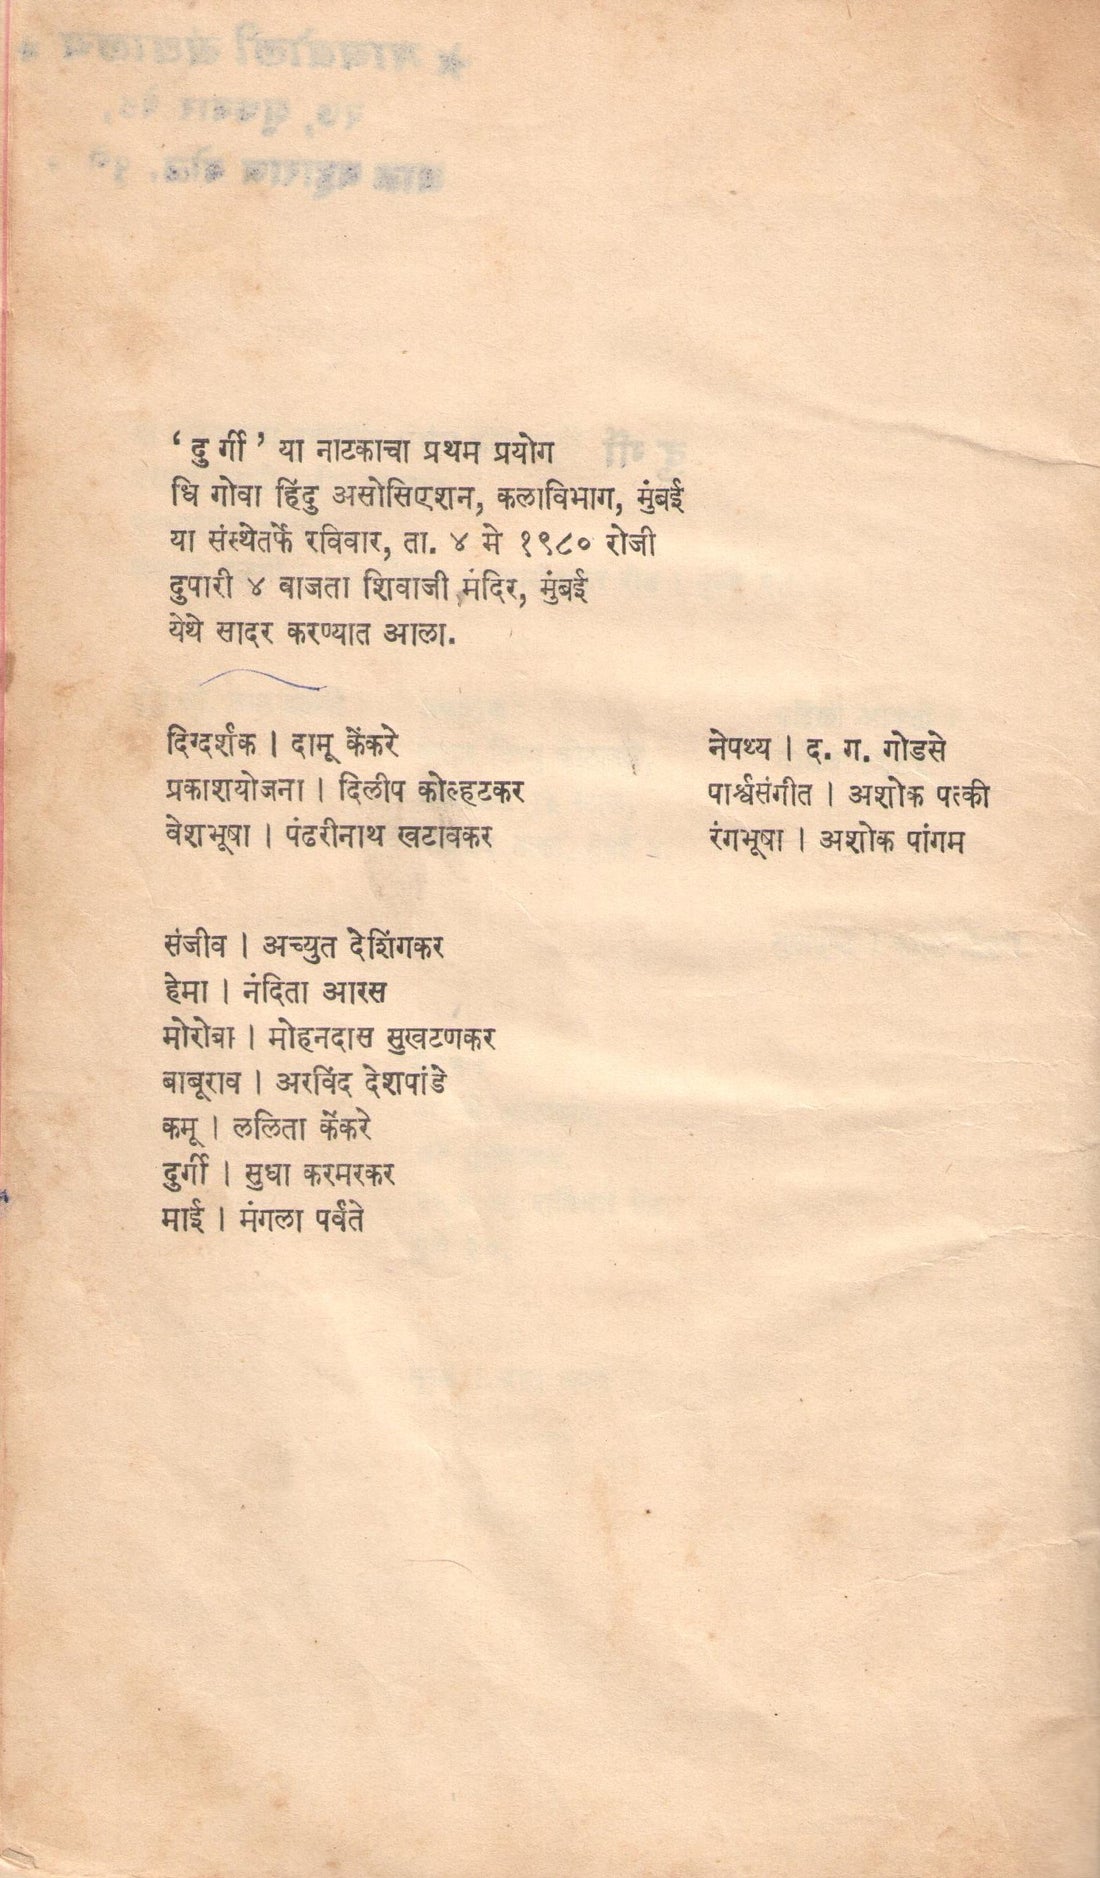 ‘ दुर्गी ’ या नाटकाचा प्रथम प्रयोग
धि गोवा हिंदु असोसिएशन, कलाविभाग, मुंबई
या संस्थेतर्फे रविवार, ता. ४ मे १९८० रोजी
दुपारी ४ वाजता शिवाजी मंदिर, मुंबई
येथे सादर करण्यात आला.
दिग्दर्शक | दामू केंकरे
प्रकाशयोजना | दिलीप कोल्हटकर
वेशभूषा | पंढरीनाथ खटावकर
नेपथ्य | द. ग. गोडसे
पार्श्वसंगीत | अशोक पत्की
रंगभूषा | अशोक पांगम
संजीव | अच्युत देशिंगकर
हेमा | नंदिता आरस
मोरोबा | मोहनदास सुखटणकर
बाबूराव | अरविंद देशपांडे
कमू | ललिता केंकरे
दुर्गी | सुधा करमरकर
माई | मंगला पर्वते